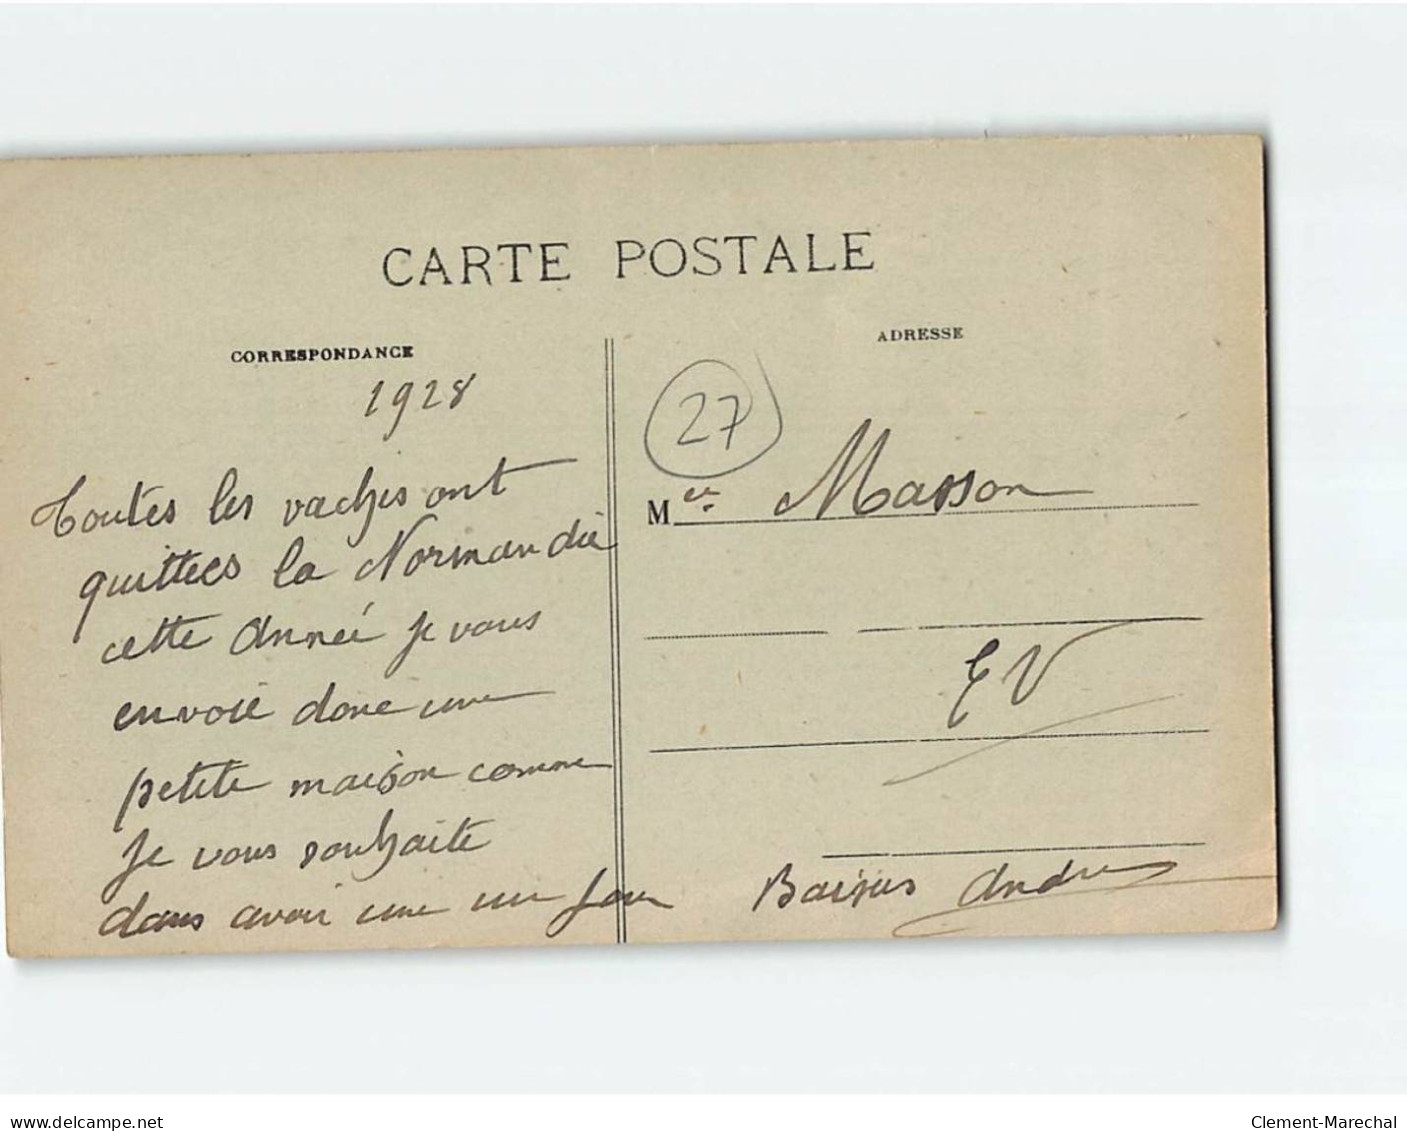 CARTE POSTALE
CORRESPONDANCE
1928
Toutes les vaches ont
quittees la Normandie
cette Année je vous
envoie donc une
petite maison comme
je vous souhaite
dans avoir une un jour
ADRESSE
27
M Masson
EV
Baisers André
delcampe.net
Clement-Marechal